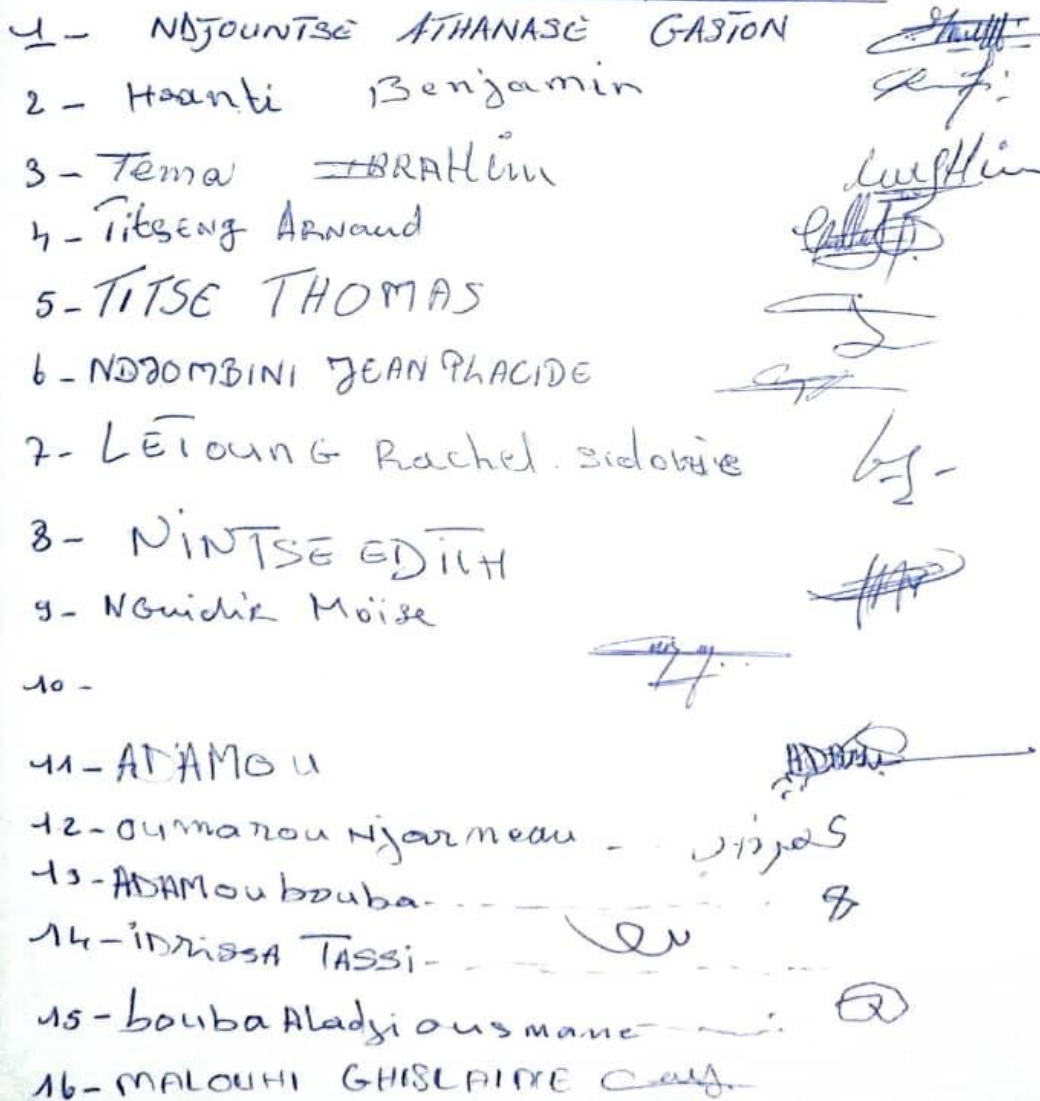 1- NDJOUNTSE ATHANASE GASTON
2- Hoanti Benjamin
3- Tema IBRAHim
4- TitsENg ARNaud
5- TITSE THOMAS
6- NDJOMBINI JEAN PLACIDE
7- LETounG Rachel. sidonie
8- NiNTSE EDiTH
9- NGuidik Moïse
10-
11- ADAMOU
12- oumarou Njarmeau
13- ADAMou bouba
14- iDrissA TASSi-
15- bouba Aladji ousmane
16- MALOUHI GHISLAINE